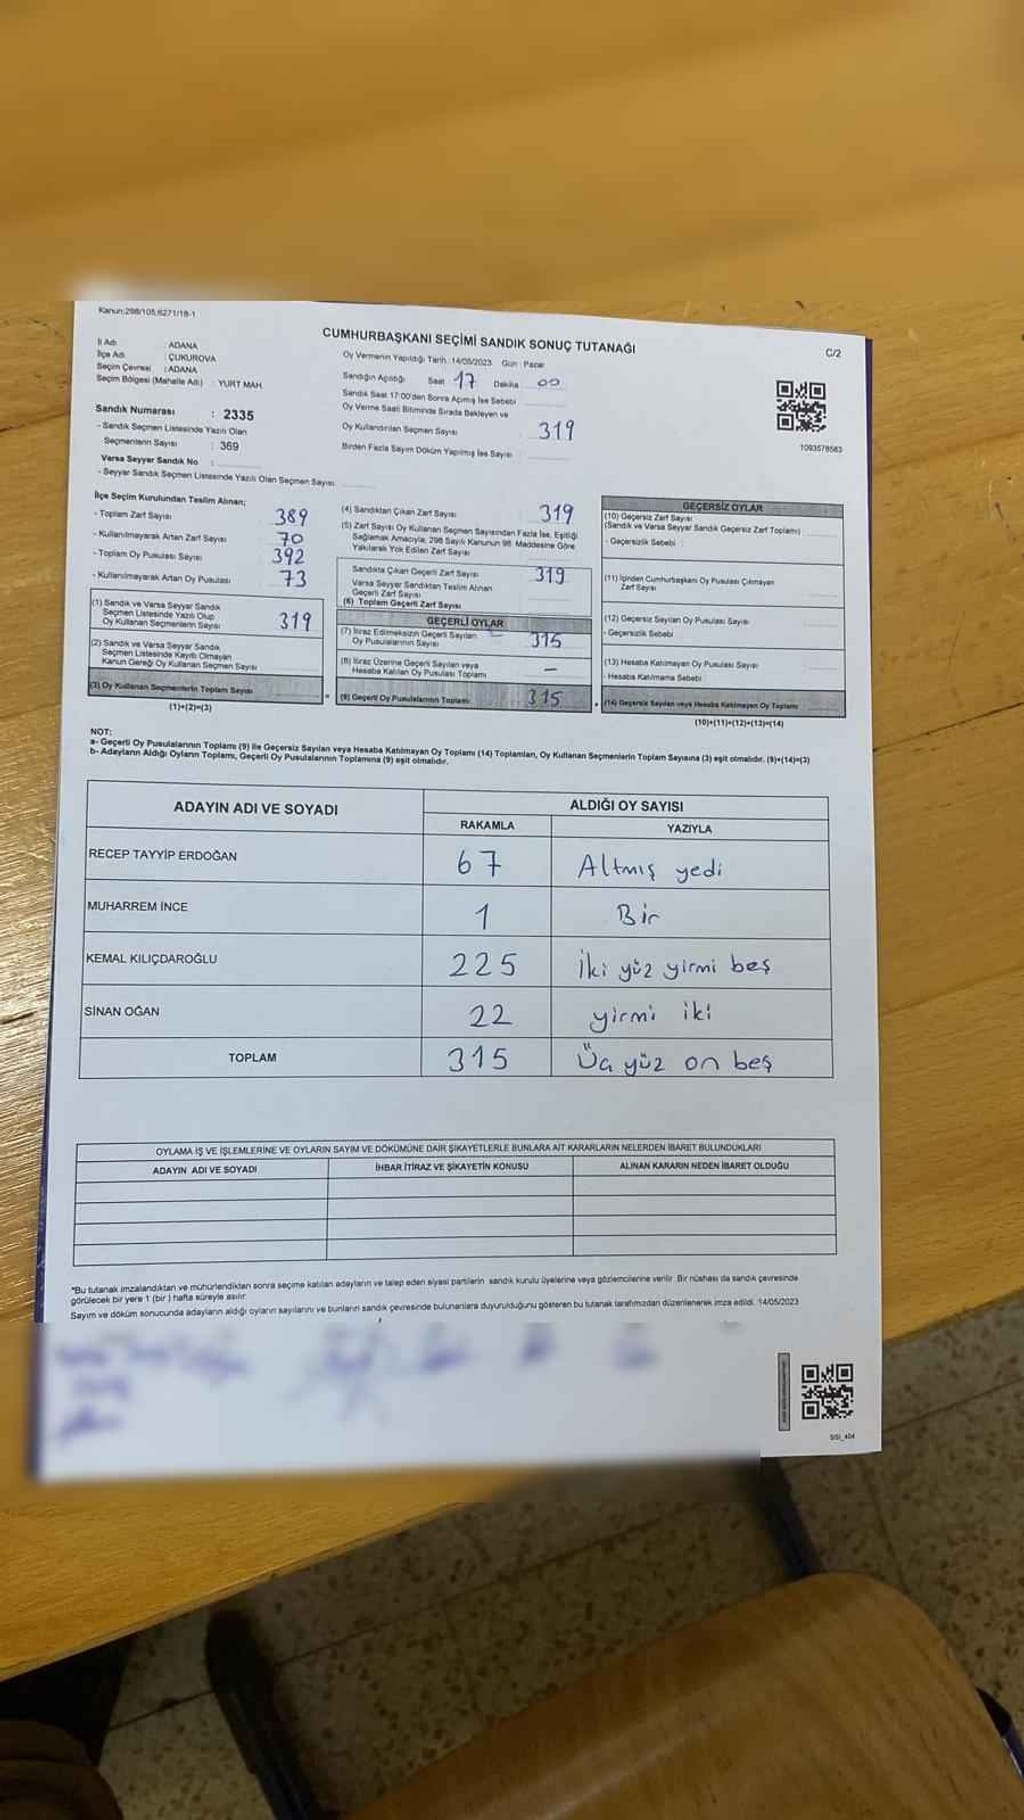 Kanun:298/105,6271/18-1
CUMHURBAŞKANI SEÇİMİ SANDIK SONUÇ TUTANAĞI
C/2
İl Adı : ADANA
İlçe Adı : ÇUKUROVA
Seçim Çevresi : ADANA
Seçim Bölgesi (Mahalle Adı) : YURT MAH.
Sandık Numarası : 2335
- Sandık Seçmen Listesinde Yazılı Olan
Seçmenlerin Sayısı : 369
Varsa Seyyar Sandık No :
- Seyyar Sandık Seçmen Listesinde Yazılı Olan Seçmen Sayısı
Oy Vermenin Yapıldığı Tarih : 14/05/2023 Gün : Pazar
Sandığın Açıldığı Saat 17 Dakika 00
Sandık Saat 17:00'den Sonra Açılmış İse Sebebi
Oy Verme Saati Bitiminde Sırada Bekleyen ve
Oy Kullandırılan Seçmen Sayısı 319
Birden Fazla Sayım Döküm Yapılmış İse Sayısı
1093578563
İlçe Seçim Kurulundan Teslim Alınan;
- Toplam Zarf Sayısı 389
- Kullanılmayarak Artan Zarf Sayısı 70
- Toplam Oy Pusulası Sayısı 392
- Kullanılmayarak Artan Oy Pusulası 73
(1) Sandık ve Varsa Seyyar Sandık
Seçmen Listesinde Yazılı Olup
Oy Kullanan Seçmenlerin Sayısı 319
(2) Sandık ve Varsa Seyyar Sandık
Seçmen Listesinde Kayıtlı Olmayan
Kanun Gereği Oy Kullanan Seçmen Sayısı
(3) Oy Kullanan Seçmenlerin Toplam Sayısı
(1)+(2)=(3)
(4) Sandıktan Çıkan Zarf Sayısı 319
(5) Zarf Sayısı Oy Kullanan Seçmen Sayısından Fazla İse, Eşitliği
Sağlamak Amacıyla, 298 Sayılı Kanunun 98. Maddesine Göre
Yakılarak Yok Edilen Zarf Sayısı
Sandıkta Çıkan Geçerli Zarf Sayısı 319
Varsa Seyyar Sandıktan Teslim Alınan
Geçerli Zarf Sayısı
(6) Toplam Geçerli Zarf Sayısı
GEÇERLİ OYLAR
(7) İtiraz Edilmeksizin Geçerli Sayılan
Oy Pusulalarının Sayısı 315
(8) İtiraz Üzerine Geçerli Sayılan veya
Hesaba Katılan Oy Pusulası Toplamı —
(9) Geçerli Oy Pusulalarının Toplamı 315
GEÇERSİZ OYLAR
(10) Geçersiz Zarf Sayısı
(Sandık ve Varsa Seyyar Sandık Geçersiz Zarf Toplamı)
- Geçersizlik Sebebi :
(11) İçinden Cumhurbaşkanı Oy Pusulası Çıkmayan
Zarf Sayısı
(12) Geçersiz Sayılan Oy Pusulası Sayısı
- Geçersizlik Sebebi
(13) Hesaba Katılmayan Oy Pusulası Sayısı
- Hesaba Katılmama Sebebi
(14) Geçersiz Sayılan veya Hesaba Katılmayan Oy Toplamı
(10)+(11)+(12)+(13)=(14)
NOT:
a- Geçerli Oy Pusulalarının Toplamı (9) ile Geçersiz Sayılan veya Hesaba Katılmayan Oy Toplamı (14) Toplamları, Oy Kullanan Seçmenlerin Toplam Sayısına (3) eşit olmalıdır. (9)+(14)=(3)
b- Adayların Aldığı Oyların Toplamı, Geçerli Oy Pusulalarının Toplamına (9) eşit olmalıdır.
ADAYIN ADI VE SOYADI ALDIĞI OY SAYISI
RAKAMLA YAZIYLA
RECEP TAYYİP ERDOĞAN 67 Altmış yedi
MUHARREM İNCE 1 Bir
KEMAL KILIÇDAROĞLU 225 İki yüz yirmi beş
SİNAN OĞAN 22 yirmi iki
TOPLAM 315 Üç yüz on beş
OYLAMA İŞ VE İŞLEMLERİNE VE OYLARIN SAYIM VE DÖKÜMÜNE DAİR ŞİKAYETLERLE BUNLARA AİT KARARLARIN NELERDEN İBARET BULUNDUKLARI
ADAYIN ADI VE SOYADI İHBAR İTİRAZ VE ŞİKAYETİN KONUSU ALINAN KARARIN NEDEN İBARET OLDUĞU
*Bu tutanak imzalandıktan ve mühürlendikten sonra seçime katılan adayların ve talep eden siyasi partilerin sandık kurulu üyelerine veya gözlemcilerine verilir. Bir nüshası da sandık çevresinde
görülecek bir yere 1 (bir) hafta süreyle asılır.
Sayım ve döküm sonucunda adayların aldığı oyların sayılarını ve bunların sandık çevresinde bulunanlara duyurulduğunu gösteren bu tutanak tarafımızdan düzenlenerek imza edildi. 14/05/2023
SSI_404